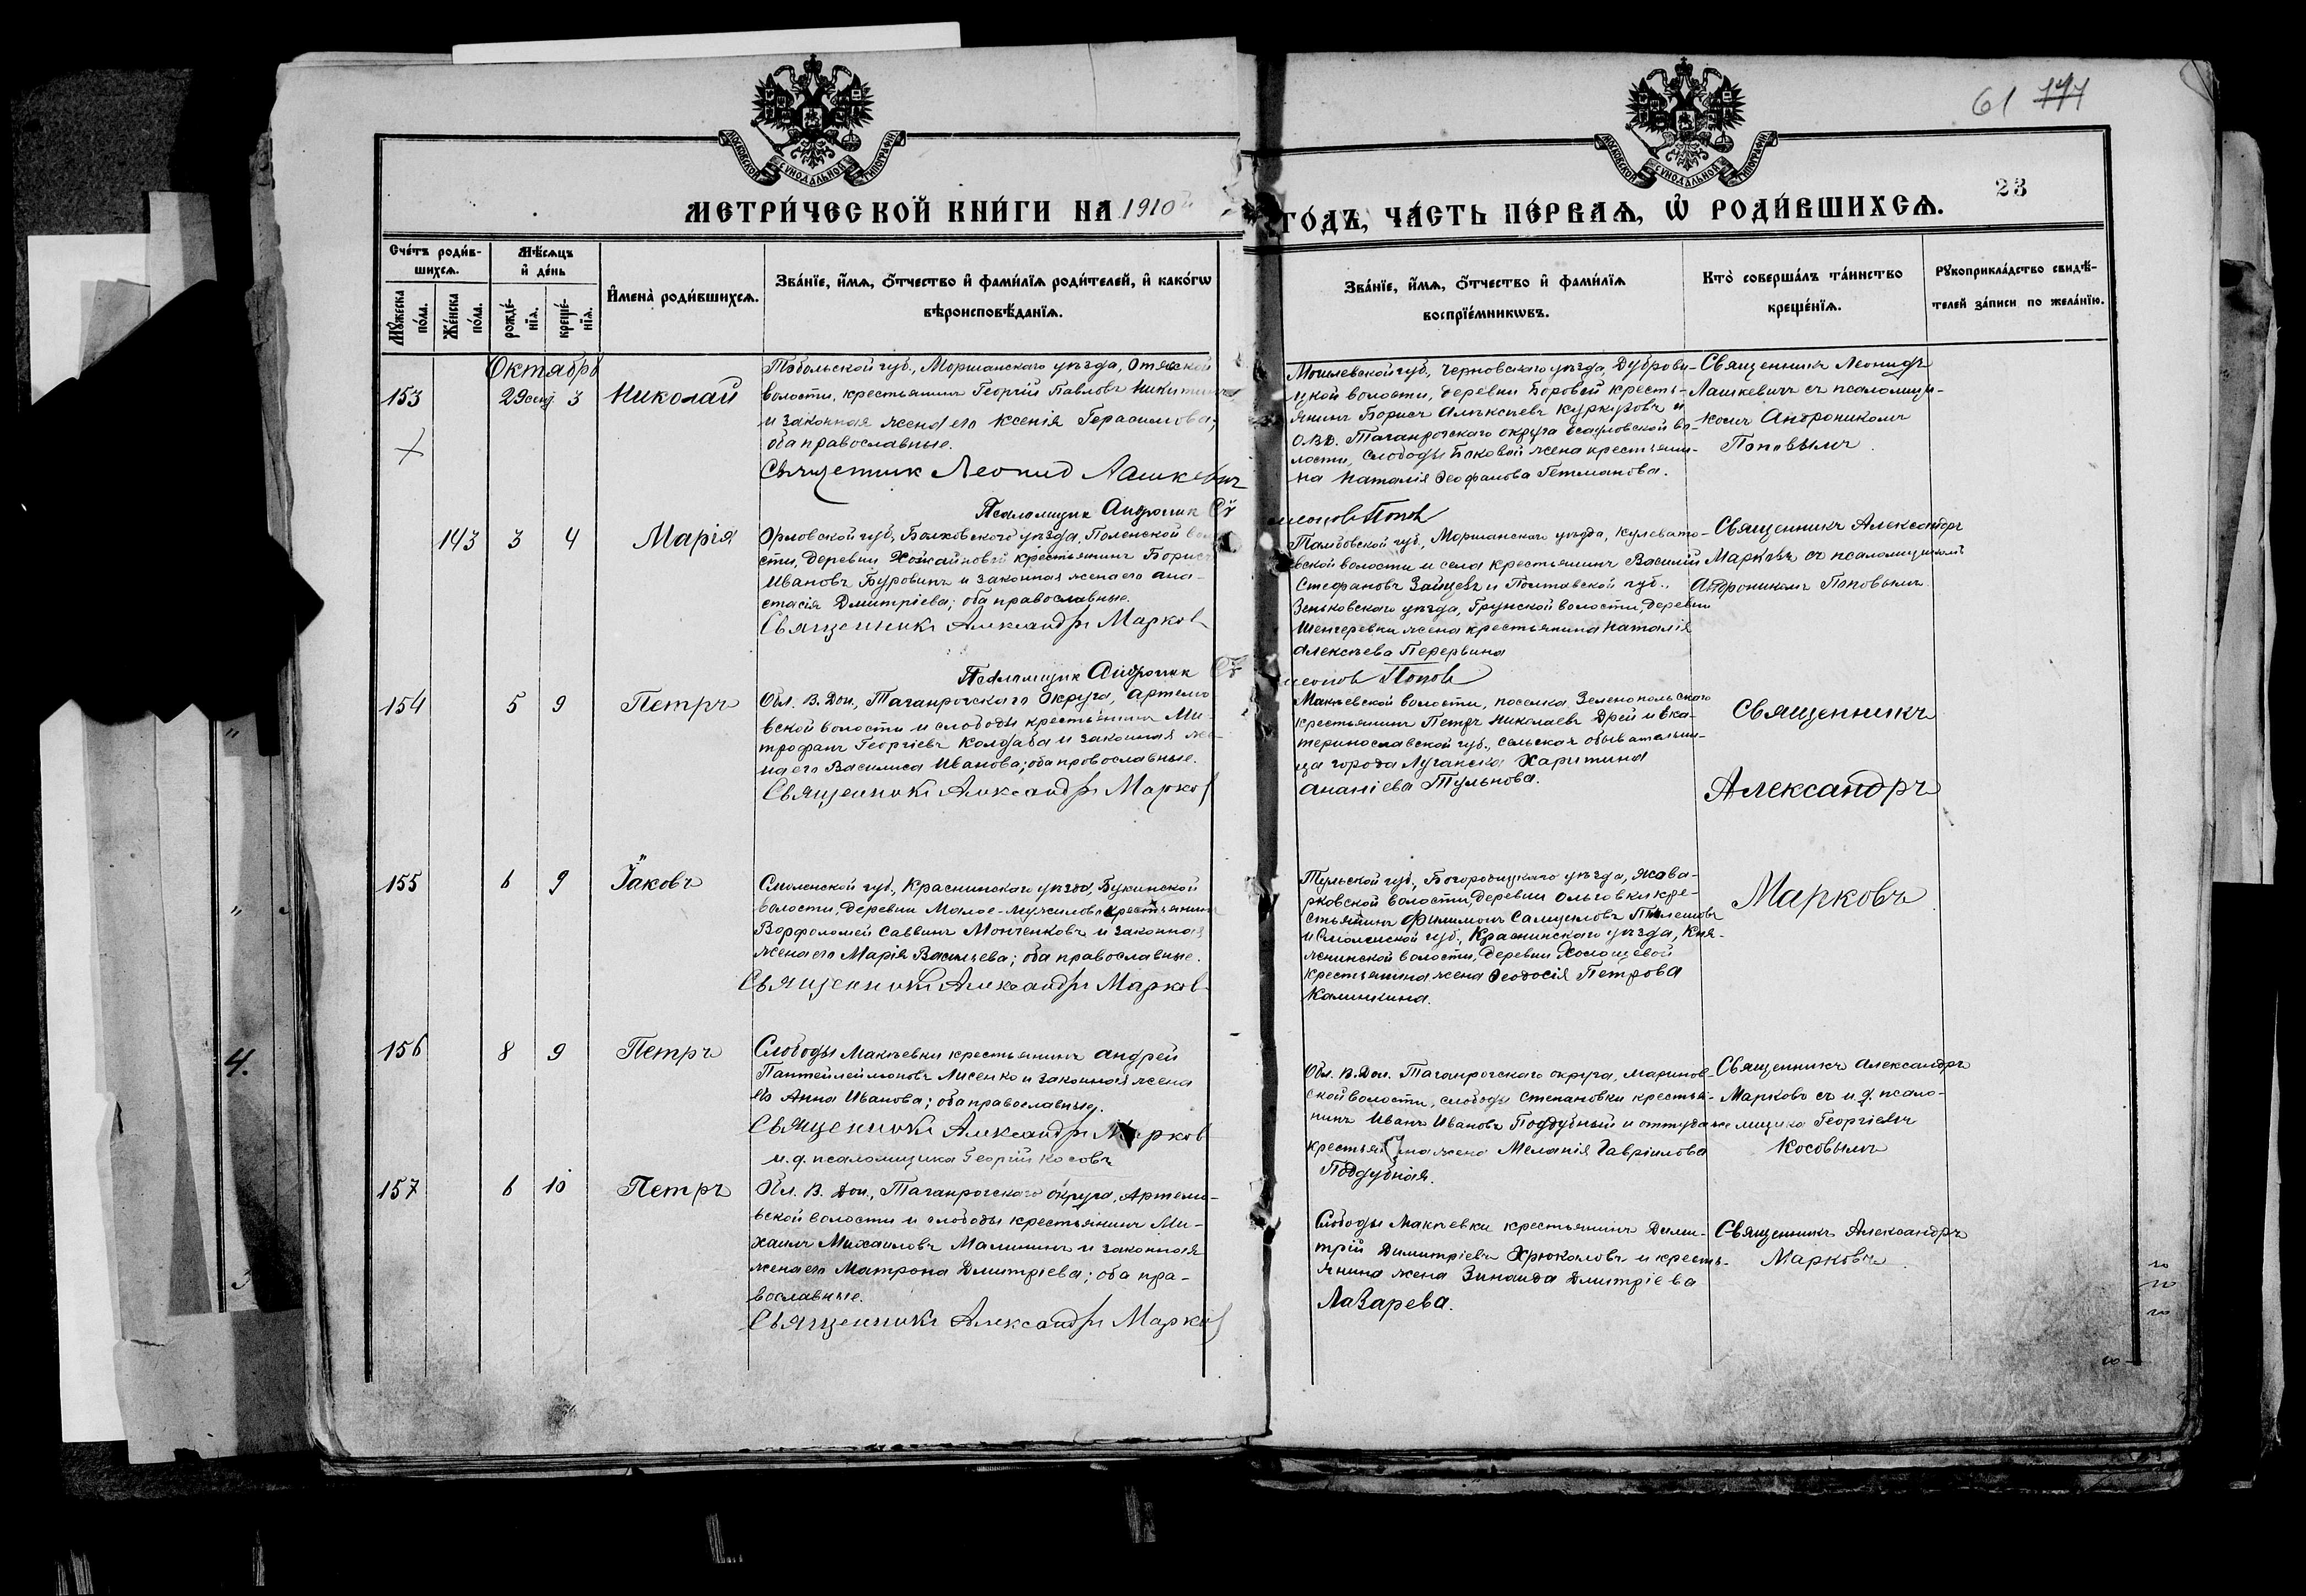 61 177
МОСКОВСКОЙ СУНОДАЛЬНОЙ ТИПОГРАФІИ
МОСКОВСКОЙ СУНОДАЛЬНОЙ ТИПОГРАФІИ
23
МЕТРИ́ЧЕСКОЙ КНИ́ГИ НА 1910й
ГО́ДЪ, ЧА́СТЬ ПЕ́РВАѦ, Ѽ РОДИ́ВШИХСѦ.
Сче́тъ роди́в-
шихсѧ.
Му́жеска
по́ла.
Же́нска
по́ла.
Мѣ́сѧцъ
и҆ де́нь
рожде́-
нїѧ.
креще́-
нїѧ.
И҆мена̀ роди́вшихсѧ.
Зва́нїе, и҆́мѧ, ѻ҆́тчество и҆ фами́лїѧ роди́телей, и҆ како́гѡ
вѣроисповѣ́данїѧ.
Зва́нїе, и҆́мѧ, ѻ҆́тчество и҆ фами́лїѧ
воспрїе́мникѡвъ.
Кто̀ соверша́лъ та́инство
креще́нїѧ.
Рꙋкоприкла́дство свидѣ́-
телей за́писи по жела́нїю.
Октябрь
153
29 сент. 3
Николай
Тобольской губ., Моршанскаго уѣзда,
волости, крестьянинъ Георгій Павловъ Никитинъ
и законная жена его Ксенія Герасимова;
оба православные.
Священникъ Леонид Лашкевич
Псаломщик Андроник
Могилевской губ., Черновскаго уѣзда, Дуброви-
цкой волости, деревни Боровой кресть-
янинъ Борисъ Алексѣевъ Куркузовъ и
О.В.Д. Таганрогскаго округа Есауловской во-
лости, слободы Боковой жена крестьяни-
на Наталія Ѳеофанова Гетманова.
Попов
Священникъ Леонидъ
Лашкевичъ съ псаломщи-
комъ Андроникомъ
Поповымъ.
143
3 4
Марія
Орловской губ., Болховскаго уѣзда, Поленской воло
сти, деревни Хожайновой крестьянинъ Борисъ
Ивановъ Буровинъ и законная жена его Ана-
стасія Дмитріева; оба православные.
Священникъ Александръ Марков
Псаломщик Андроник
Тамбовской губ., Моршанскаго уѣзда, Кулевато-
вской волости и села крестьянинъ Василій
Стефановъ Зайцевъ и Полтавской губ.,
Зеньковскаго уѣзда, Грунской волости, деревни
Шенгеревки жена крестьянина Наталія
Алексѣева Перервина
Попов
Священникъ Александръ
Марковъ съ псаломщикомъ
Андроникомъ Поповымъ.
154
5 9
Петръ
Обл. В. Дон., Таганрогскаго округа, Артемо
вской волости и слободы крестьянинъ Ми-
трофанъ Георгіевъ Колдаба и законная же-
на его Василиса Иванова; оба православные.
Священникъ Александръ Марков
Макѣевской волости, поселка Зеленопольскаго
крестьянинъ Петръ Николаевъ Дрей и Ека-
теринославской губ., сельская обывательни-
ца города Луганска Харитина
Ананіева Тулькова.
Священникъ
Александръ
155
6 9
Іаковъ
Смоленской губ., Краснинскаго уѣзда, Букинской
волости, деревни Малое-Мужилово крестьянинъ
Варфоломей Саввинъ Монченковъ и законная
жена его Марія Васильева; оба православные.
Священникъ Александръ Марков
Тульской губ., Богородицкаго уѣзда, Жава-
рковской волости, деревни Ольговки кре-
стьянинъ Филимонъ Самуиловъ Пилешовъ
и Смоленской губ., Краснинскаго уѣзда, Кня-
жинской волости, деревни Холощевой
крестьянина жена Ѳеодосія Петрова
Калинкина.
Марковъ
156
8 9
Петръ
Слободы Макѣевки крестьянинъ Андрей
Пантейлеймоновъ Лисенко и законная жена
его Анна Иванова; оба православные.
Священникъ Александръ Марков
и. д. псаломщика Георгій Косовъ
Обл. В. Дон. Таганрогскаго округа, Маринов-
ской волости, слободы Степановки крестья-
нинъ Иванъ Ивановъ Поддубный и оттуда же
крестьянина жена Меланія Гавріилова
Поддубная.
Священникъ Александръ
Марковъ съ и. д. псало-
мщика Георгіемъ
Косовымъ
157
6 10
Петръ
Обл. В. Дон., Таганрогскаго округа, Артемо-
вской волости и слободы крестьянинъ Ми-
хаилъ Михаиловъ Малининъ и законная
жена его Матрона Дмитріева; оба пра-
вославные.
Священникъ Александръ Марков
Слободы Макѣевки крестьянинъ Дими-
трій Димитріевъ Хрюкаловъ и кресть-
янина жена Зинаида Дмитріева
Лазарева.
Священникъ Александръ
Марковъ
4.